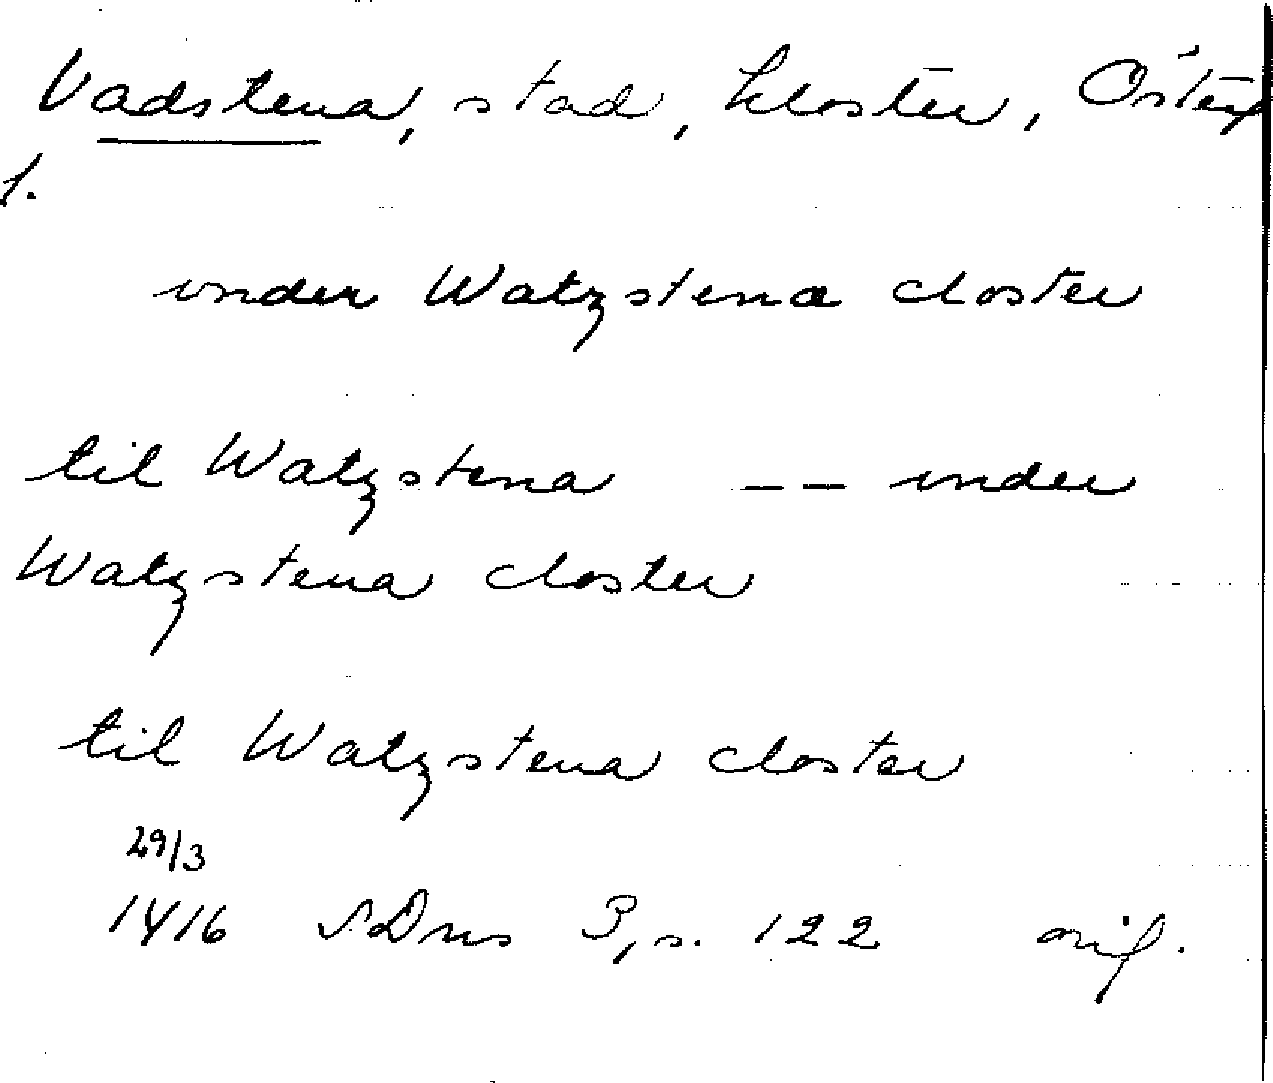 Vadstena, stad, kloster, Österg
l.
under Watzstena closter
til Watzstena -- under
Watzstena closter
til Watzstena closter
29/3
1416 SDns 3, s. 122 orig.